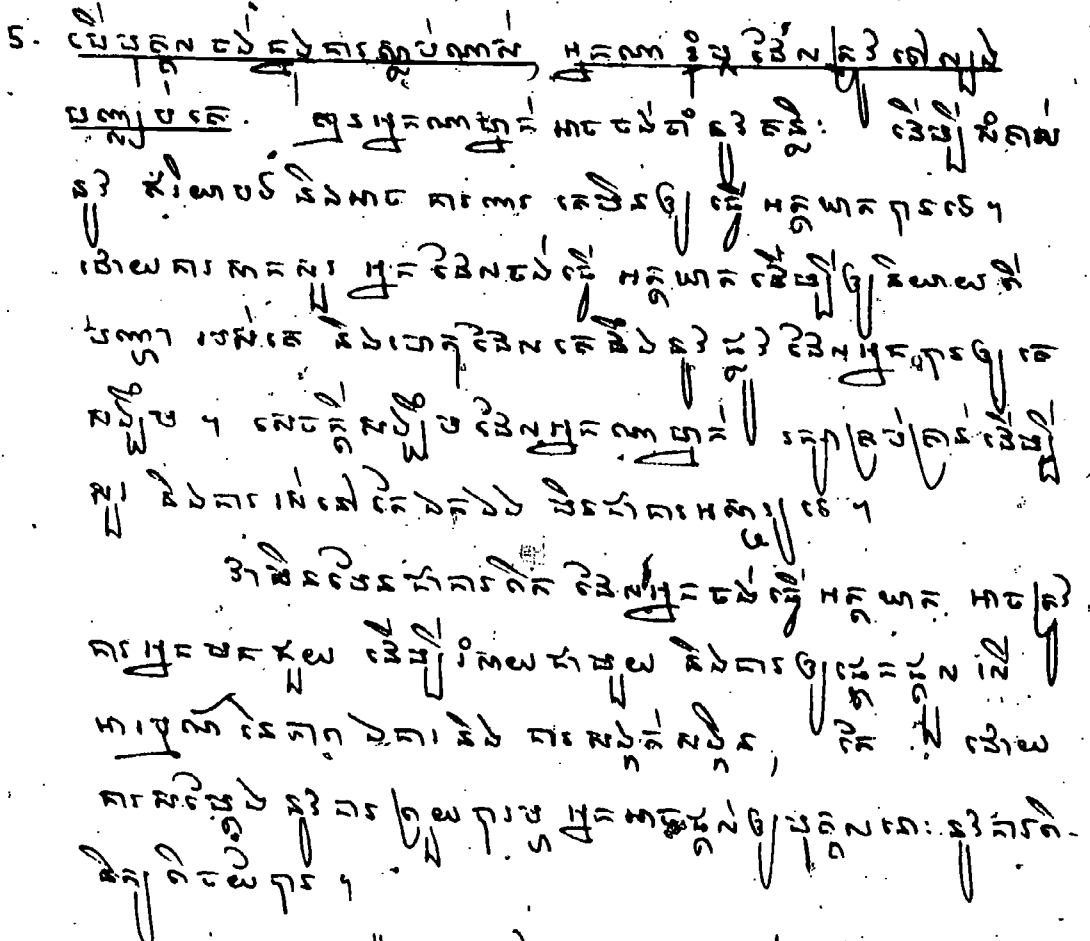 5. បើបុគ្គលចង់ក្នុងការស្លាប់ណាស់, អ្នកណានិមួយដែលត្រូវទៅល្បង
បញ្ឈប់គេ. គ្មានអ្នកណាម្នាក់អាចចង់ចាំនូវគន្លឹះ ដើម្បីជំទាស់
នូវឥរិយាបថ៍ និងអាចការពារគេមិនឲ្យធ្វើអត្តឃាតបានទេ។
ដោយការសាកសួរអ្នកដែលចង់ធ្វើអត្តឃាតដើម្បីឲ្យនិយាយពី
បញ្ហារបស់គេ និងហេតុដែលគេនឹងនូវផ្លូវដែលអ្នកបានឲ្យគេ
សង្ឃឹម។ សេចក្តីសង្ឃឹមដែលអ្នកណាម្នាក់ រក្សាគ្រប់គ្រាន់ដើម្បី
សួរ និងការរស់នៅតែឯកឯង មិនជាការអស្ចារ្យទេ។
វាមិនមែនជាការពិត ដែលអ្នកចង់ធ្វើអត្តឃាត អាចត្រូវ
ការអ្នកមកជួយ ដើម្បីរំសាយជាមួយ និងការឲ្យផ្តោតផ្តល់លើ
អារម្មណ៍នៃភាពឯការ និងការសង្កត់សង្កិន, តែ ដោយ
ការសំដែងនូវការព្រួយបារម្ភ អ្នកអាចផ្តល់ឲ្យបុគ្គលនោះនូវការពិ-
និត្យពិចយ័បាន។